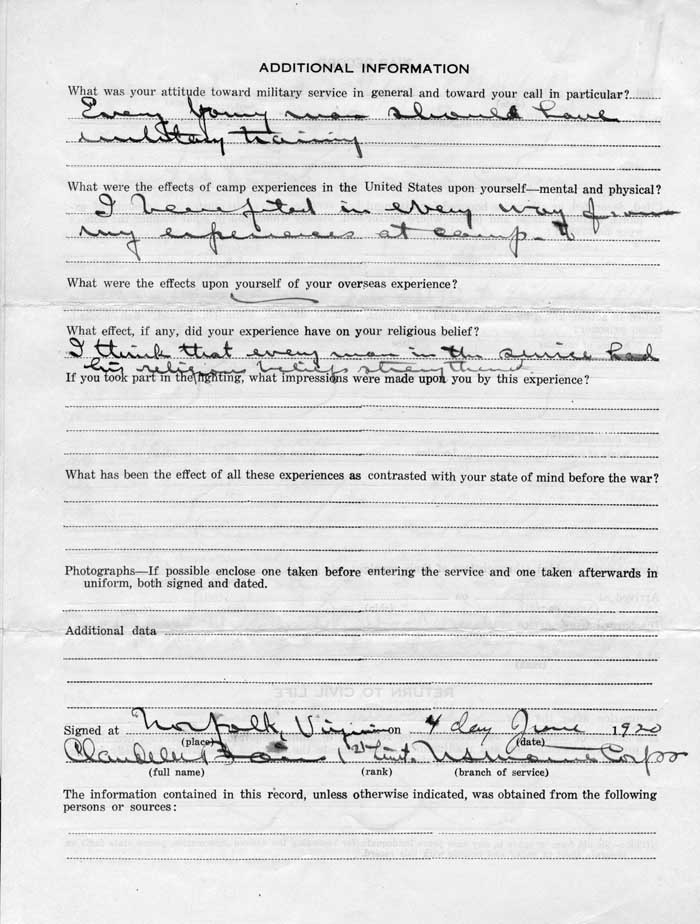 ADDITIONAL INFORMATION
What was your attitude toward military service in general and toward your call in particular?
Every young man should have
military training
What were the effects of camp experiences in the United States upon yourself—mental and physical?
I benefited in every way from
my experiences at camp.
What were the effects upon yourself of your overseas experience?
What effect, if any, did your experience have on your religious belief?
I think that every man in the service had
his religious beliefs strengthened
If you took part in the fighting, what impressions were made upon you by this experience?
What has been the effect of all these experiences as contrasted with your state of mind before the war?
Photographs—If possible enclose one taken before entering the service and one taken afterwards in
uniform, both signed and dated.
Additional data
RETURN TO CIVIL LIFE
Signed at Norfolk, Virginia on 4 day June 1920
(place) (date)
1st Lieut. US Marine Corps
(full name) (rank) (branch of service)
The information contained in this record, unless otherwise indicated, was obtained from the following
persons or sources: